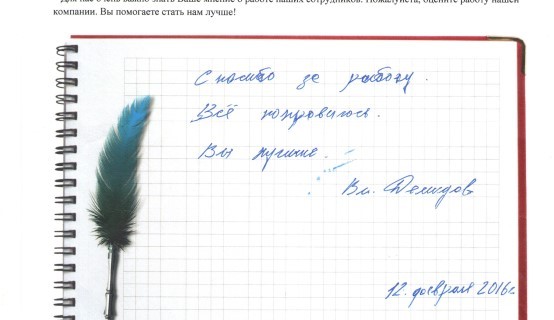 Для нас очень важно знать Ваше мнение о работе наших сотрудников. Пожалуйста, оцените работу нашей
компании. Вы помогаете стать нам лучше!
Спасибо за работу.
Всё понравилось.
Вы лучшие.
Вл. Демидов
12. февраля 2016г.